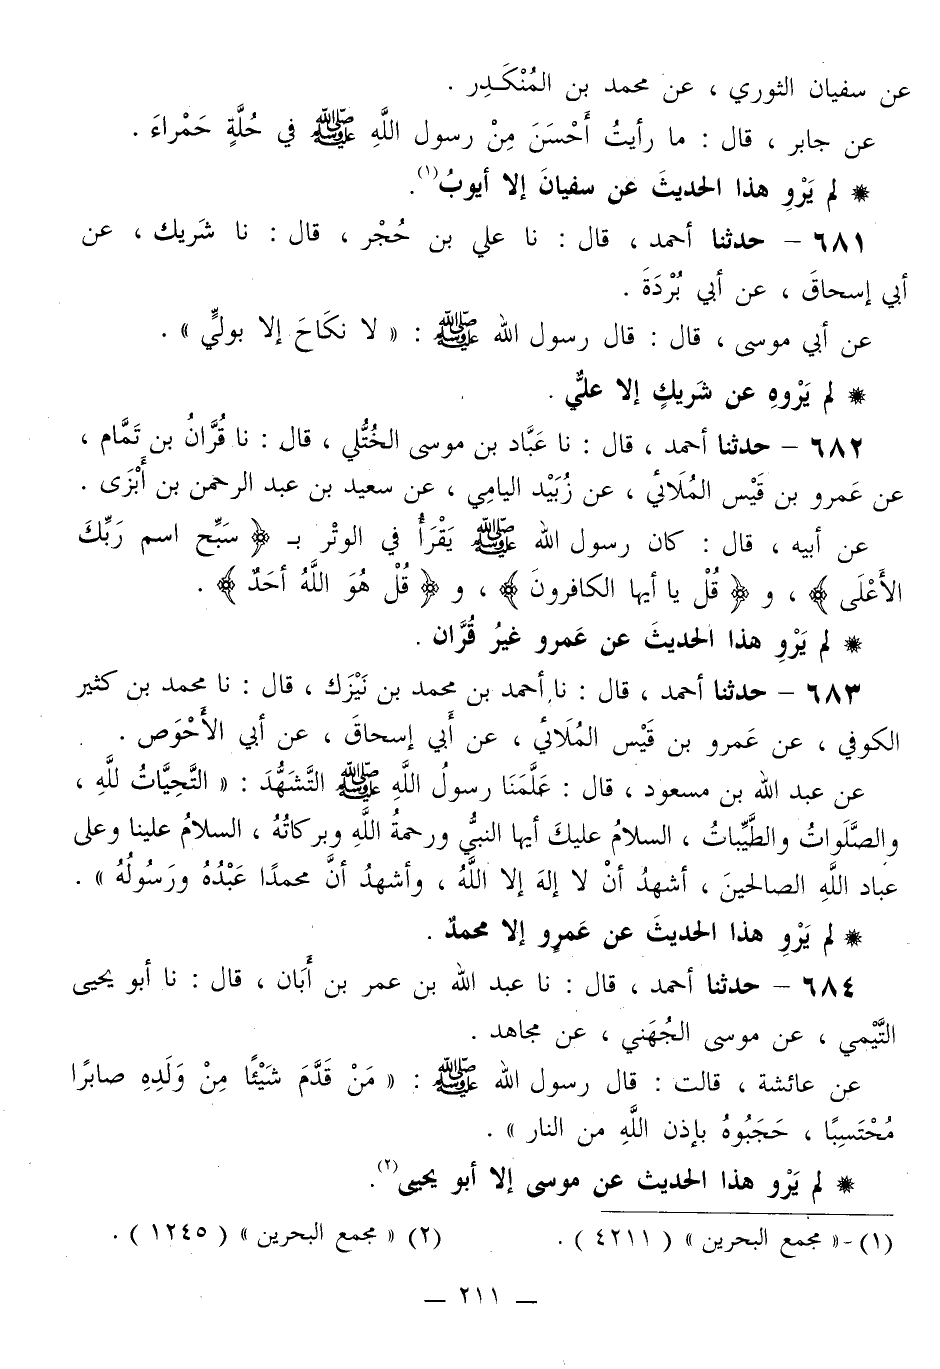 عن سفيان الثوري ، عن محمد بن المُنْكَدِر .
عن جابر ، قال : ما رأيتُ أَحْسَنَ مِنْ رسول اللَّهِ ﷺ في حُلَّةٍ حَمْراءَ .
* لم يَرْوِ هذا الحديثَ عن سفيانَ إلا أيوبُ(١).
٦٨١ – حدثنا أحمد ، قال : نا علي بن حُجْر ، قال : نا شَريك ، عن
أبي إسحاقَ ، عن أبي بُرْدَةَ .
عن أبي موسى ، قال : قال رسول الله ﷺ : « لا نكَاحَ إلا بوليٍّ » .
* لم يَرْوِهِ عن شَريكٍ إلا عليٌّ .
٦٨٢ – حدثنا أحمد ، قال : نا عَبَّاد بن موسى الخُتُّلي ، قال : نا قُرَّانُ بن تَمَّام ،
عن عَمرو بن قَيْس المُلَائي ، عن زُبَيْد اليامِي ، عن سعيد بن عبد الرحمن بن أَبْزَى .
عن أبيه ، قال : كان رسول الله ﷺ يَقْرَأُ في الوتْر بـ ﴿ سَبِّح اسم رَبِّكَ
الأَعْلَى ﴾ ، و ﴿ قُلْ يا أيها الكافرونَ ﴾ ، و ﴿ قُلْ هُوَ اللَّهُ أحَدٌ ﴾ .
* لم يَرْوِ هذا الحديثَ عن عَمرو غيرُ قُرَّان .
٦٨٣ – حدثنا أحمد ، قال : نا أحمد بن محمد بن نَيْزَك ، قال : نا محمد بن كثير
الكوفي ، عن عَمرو بن قَيْس المُلَائي ، عن أَبي إسحاقَ ، عن أبي الأَحْوَص .
عن عبد الله بن مسعود ، قال : عَلَّمَنَا رسولُ اللَّهِ ﷺ التَّشَهُّدَ : « التَّحِيَّاتُ للَّهِ ،
والصَّلَواتُ والطَّيِّباتُ ، السلامُ عليكَ أيها النبيُّ ورحمةُ اللَّهِ وبركاتُهُ ، السلامُ علينا وعلى
عباد اللَّهِ الصالحينَ ، أشهدُ أنْ لا إلهَ إلا اللَّهُ ، وأشهدُ أنَّ محمدًا عَبْدُهُ ورَسُولُهُ » .
* لم يَرْوِ هذا الحديثَ عن عَمرٍو إلا محمدٌ .
٦٨٤ – حدثنا أحمد ، قال : نا عبد الله بن عمر بن أَبَان ، قال : نا أبو يحيى
التَّيْمي ، عن موسى الجُهَني ، عن مجاهد .
عن عائشة ، قالت : قال رسول الله ﷺ : « مَنْ قَدَّمَ شَيْئًا مِنْ وَلَدِهِ صابرًا
مُحْتَسِبًا ، حَجَبُوهُ بإذن اللَّهِ من النار » .
* لم يَرْو هذا الحديث عن موسى إلا أبو يحيى(٢).
(١) - « مجمع البحرين » ( ٤٢١١ ) . (٢) « مجمع البحرين » ( ١٢٤٥ ) .
— ٢١١ —